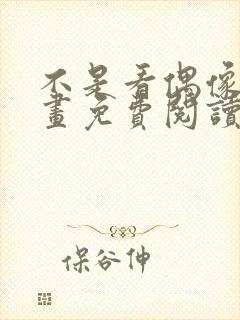 不是看偶像
畫免費閱讀
保谷伸